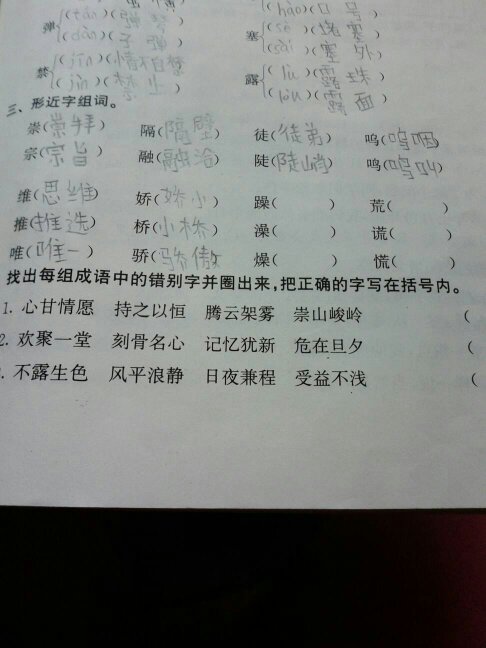 (hào)(口号)
弹{(tán)(弹琴) 塞{(sè)(堵塞)
(dàn)(子弹) (sài)(塞外)
禁{(jīn)(情不自禁) 露{(lù)(露珠)
(jìn)(禁止) (lòu)(露面)
三、形近字组词。
崇(崇拜) 隔(隔壁) 徒(徒弟) 呜(呜咽)
宗(宗旨) 融(融洽) 陡(陡峭) 鸣(鸣叫)
维(思维) 娇(娇小) 躁( ) 荒( )
推(推选) 桥(小桥) 澡( ) 谎( )
唯(唯一) 骄(骄傲) 燥( ) 慌( )
找出每组成语中的错别字并圈出来,把正确的字写在括号内。
1. 心甘情愿 持之以恒 腾云架雾 崇山峻岭 (
2. 欢聚一堂 刻骨名心 记忆犹新 危在旦夕 (
不露生色 风平浪静 日夜兼程 受益不浅 (